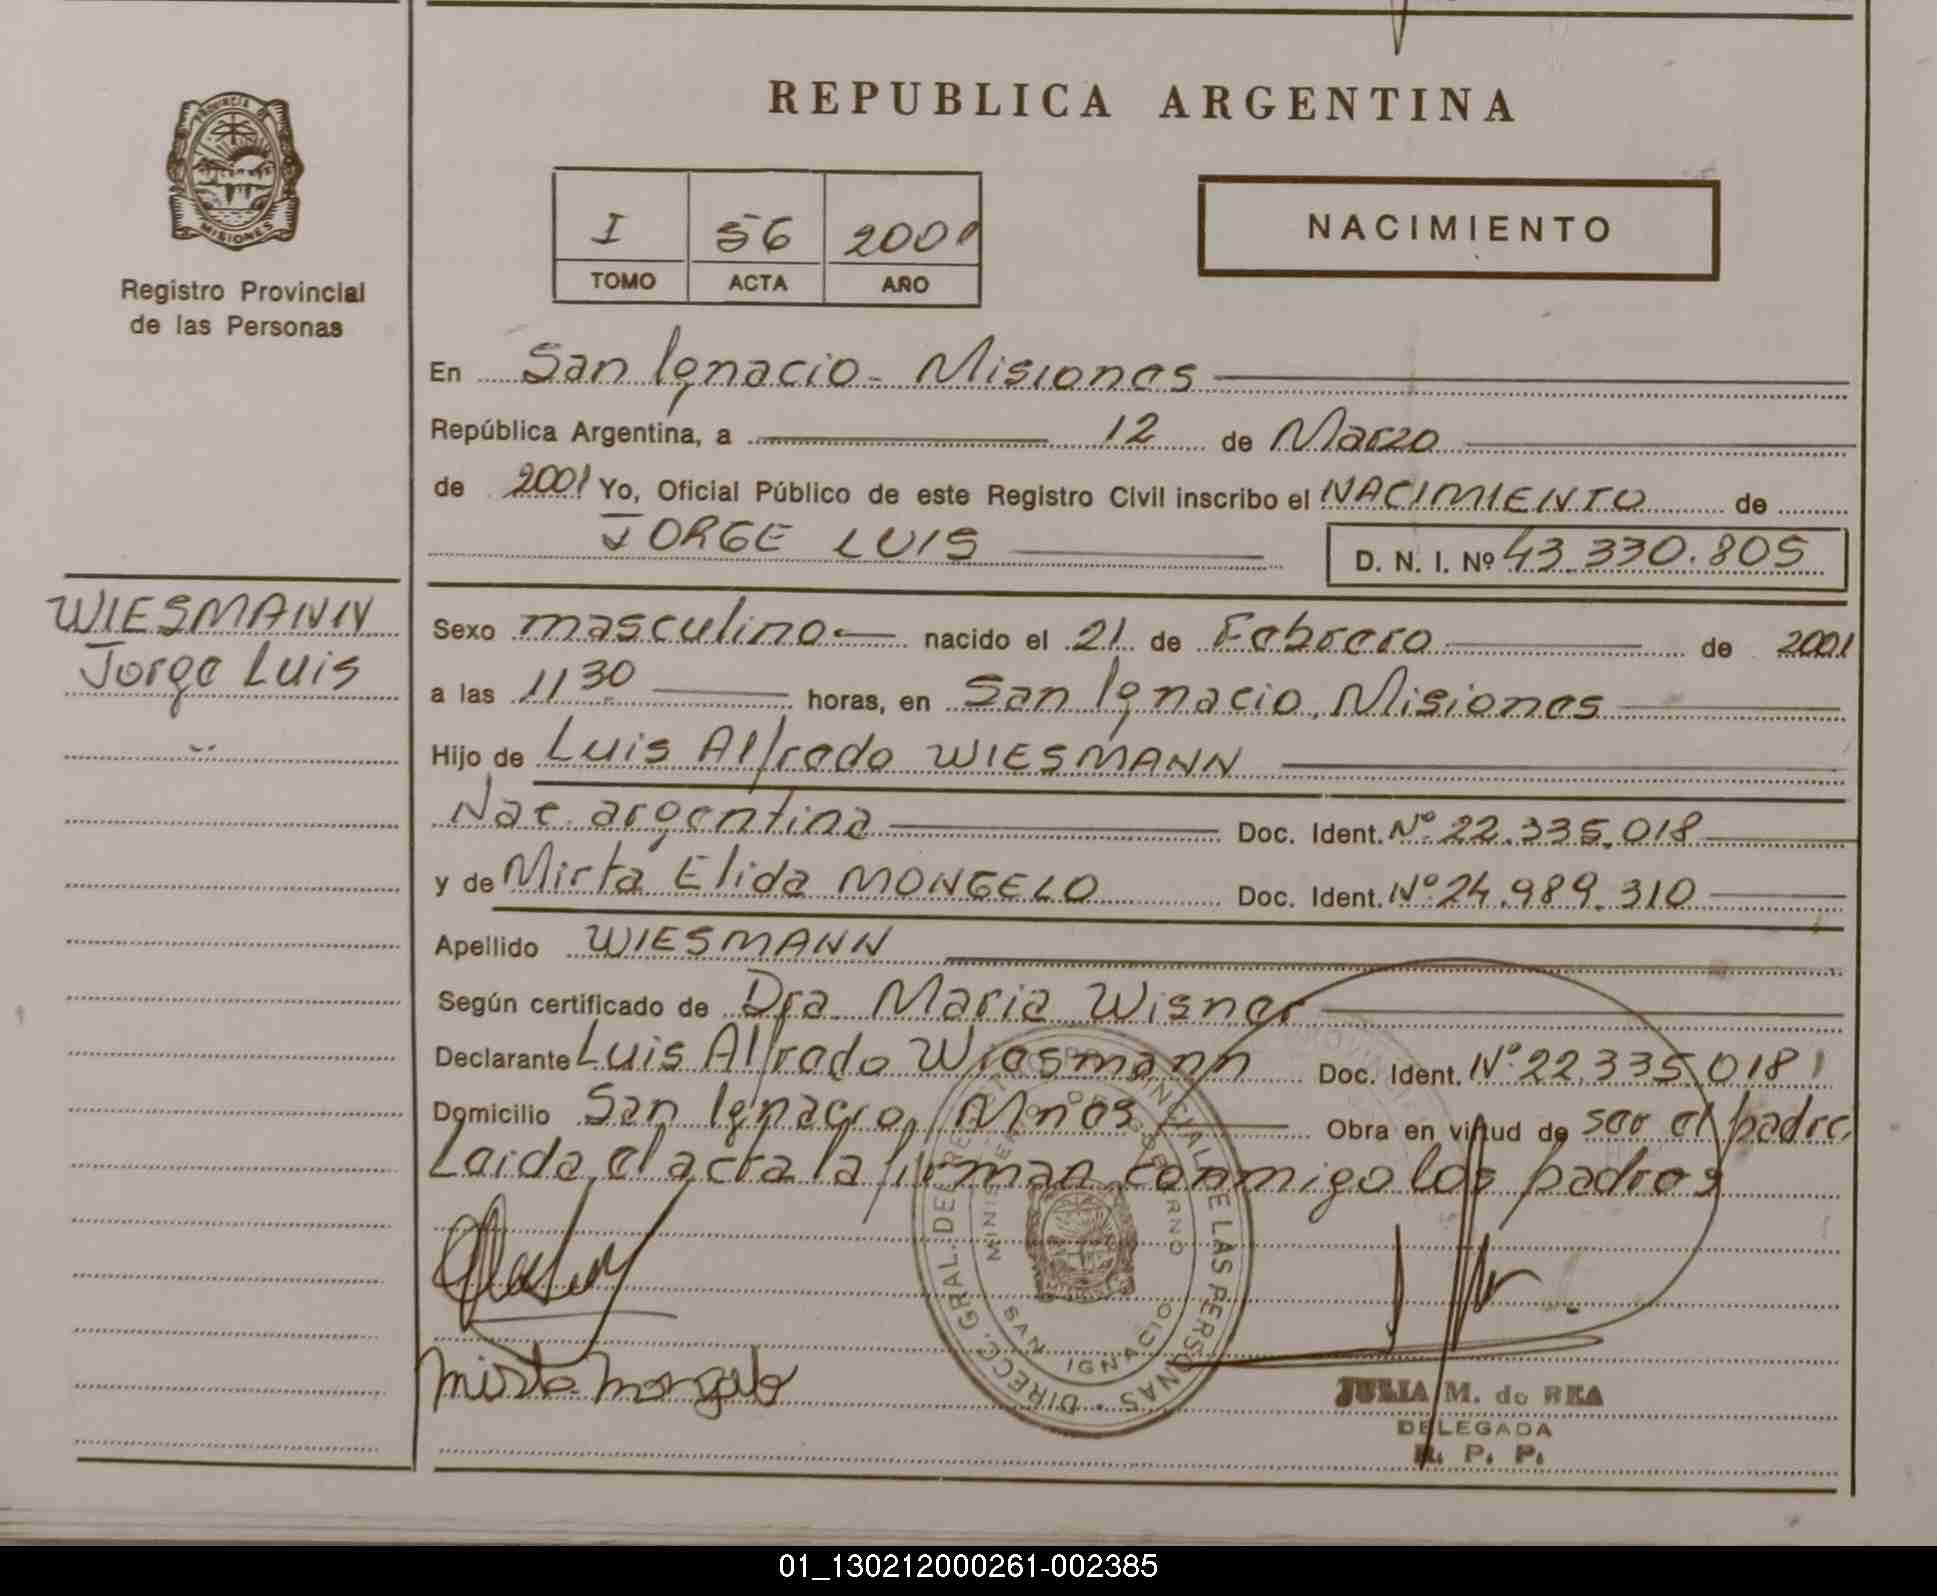 REPUBLICA ARGENTINA
PROVINCIA DE MISIONES
Registro Provincial
de las Personas
I 56 2001
TOMO ACTA AÑO
NACIMIENTO
En San Ignacio - Misiones
República Argentina, a 12 de Marzo
de 2001 Yo, Oficial Público de este Registro Civil inscribo el NACIMIENTO de
JORGE LUIS D. N. I. Nº 43.330.805
WIESMANN
Jorge Luis
Sexo masculino nacido el 21 de Febrero de 2001
a las 11 30 horas, en San Ignacio, Misiones
Hijo de Luis Alfredo WIESMANN
Nac. argentina Doc. Ident. Nº 22.335.018
y de Mirta Elida MONGELO Doc. Ident. Nº 24.989.310
Apellido WIESMANN
Según certificado de Dra. Maria Wisner
Declarante Luis Alfredo Wiesmann Doc. Ident. Nº 22.335.018
Domicilio San Ignacio, Mnes Obra en virtud de ser el padre
Leida el acta la firman conmigo los padres
DIRECC. GRAL. DEL REGISTRO PROVINCIAL DE LAS PERSONAS
MINISTERIO DE GOBIERNO
SAN IGNACIO
Mirta Mongelo
JULIA M. de REA
DELEGADA
R. P. P.
01_130212000261-002385